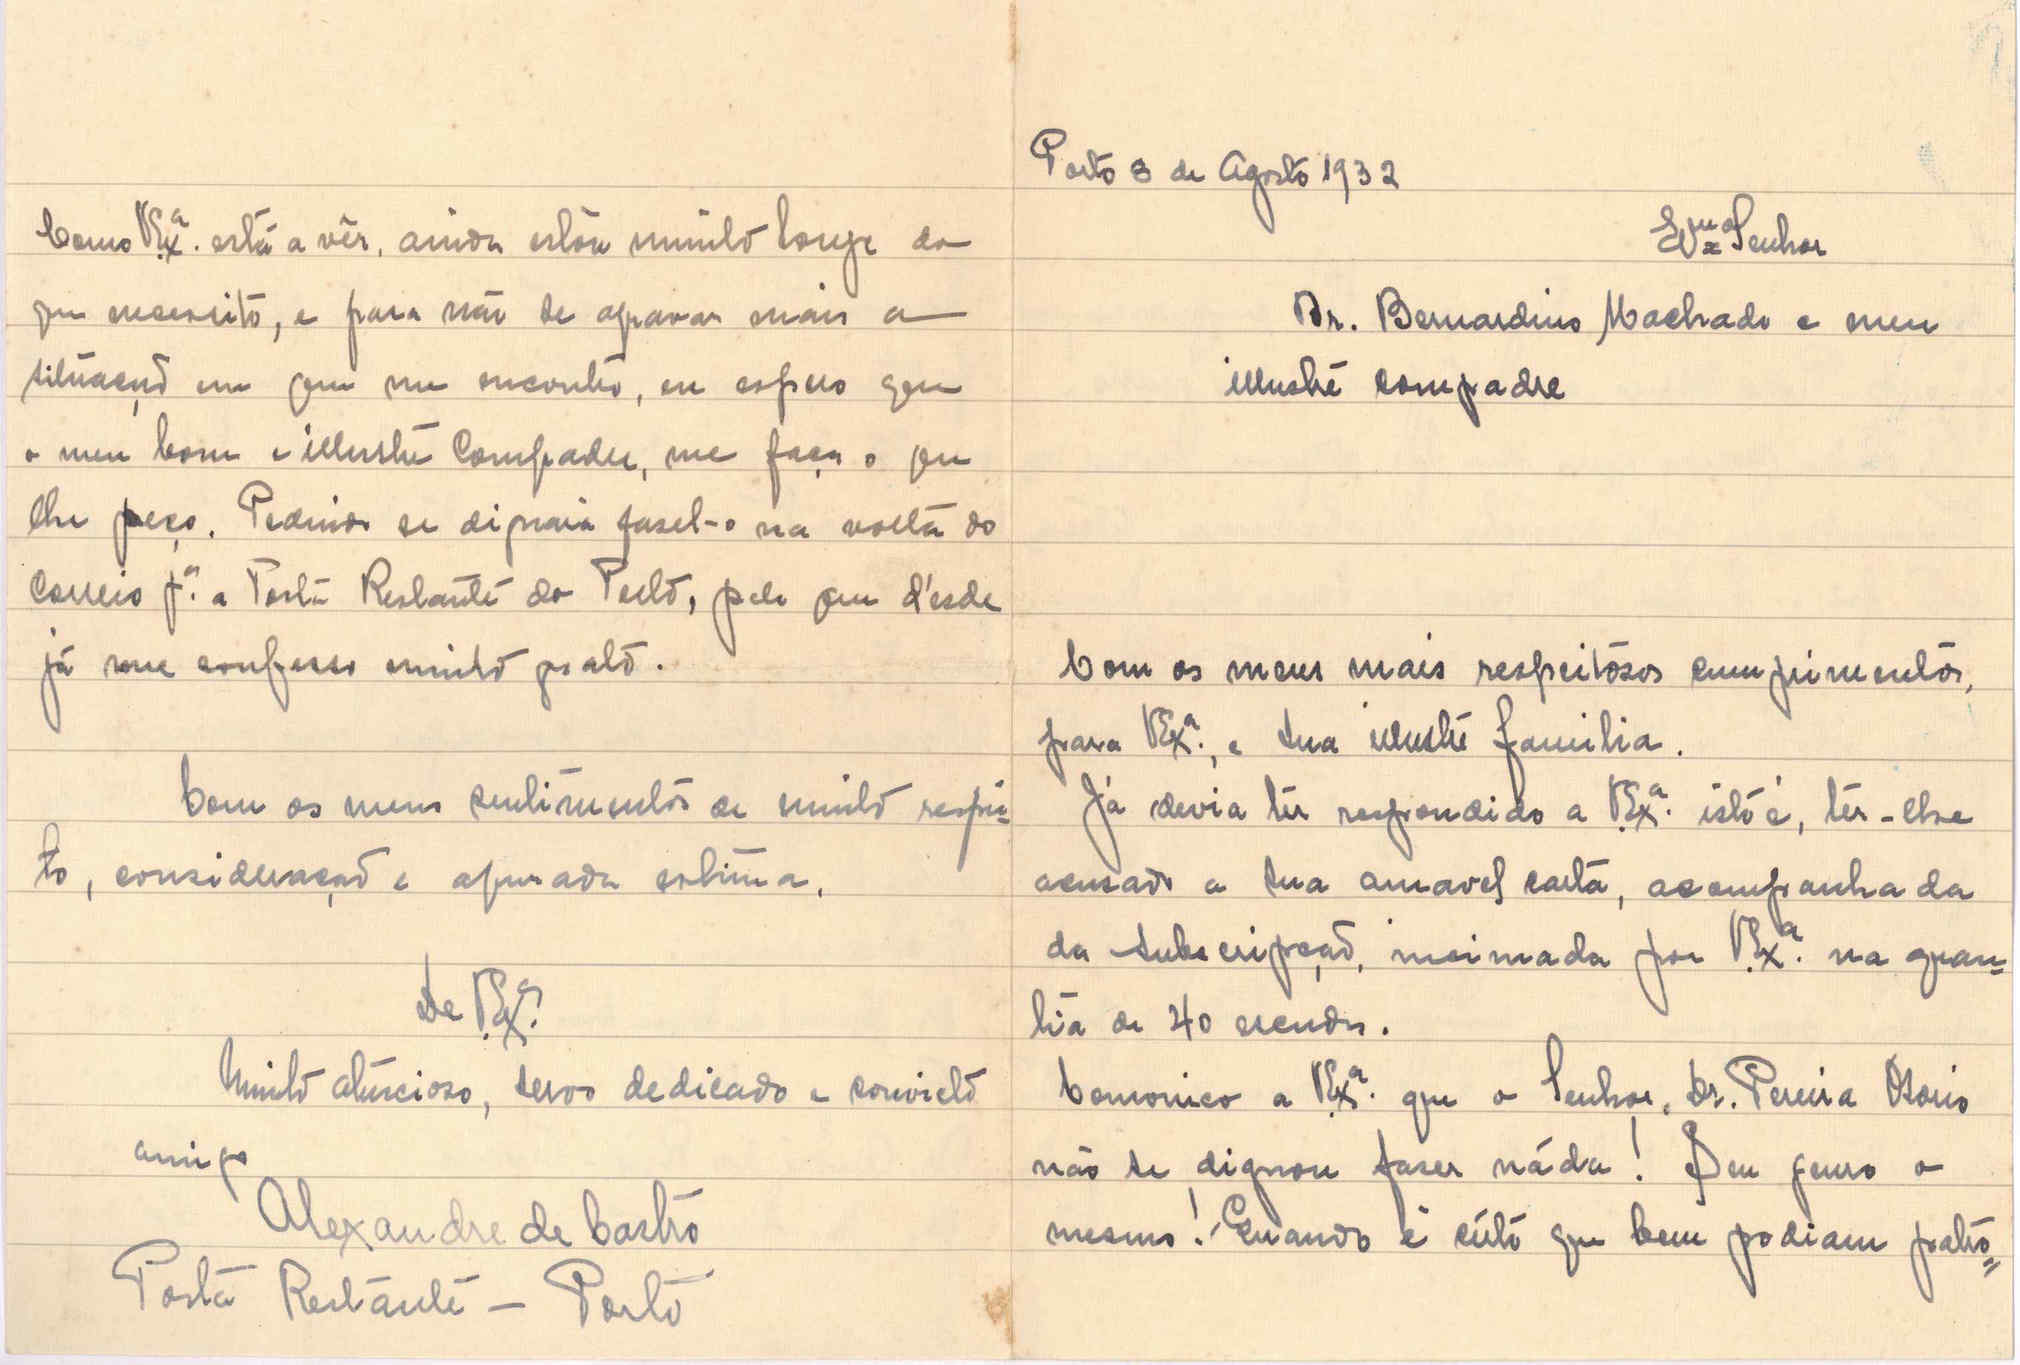 Porto 3 de Agosto 1932
Exmo Senhor
Dr. Bernardino Machado e meu
illustre compadre
Com os meus mais respeitosos cumprimentos,
para V.Exª., e sua illustre familia.
Já devia têr respondido a V.Exª. isto é, têr-lhe
acusado a sua amavel carta, acompanhada
da subscripção, incimada por V.Exª. na quan=
tia de 40 escudos.
Comonico a V.Exª. que o Senhor, Dr. Pereira Osorio
não se dignou faser náda! Seu genro o
mesmo! Quando é cérto que bem podiam patro=
Como V.Exª. está a vêr, ainda estou muito longe do
que necessito, e para não se agravar mais a
situação em que me encontro, eu espero que
o meu bom e illustre Compadre, me faça o que
lhe peço. Pedindo se dignaria fasel-o na volta do
correio pª. a Posta Restante do Porto, pelo que d'esde
já me confesso muito grato.
Com os meus sentimentos de muito respei=
to, consideração e apurada estima,
De V.Exª.
Muito atencioso, servo dedicado e convicto
amigo
Alexandre de Castro
Posta Restante — Porto